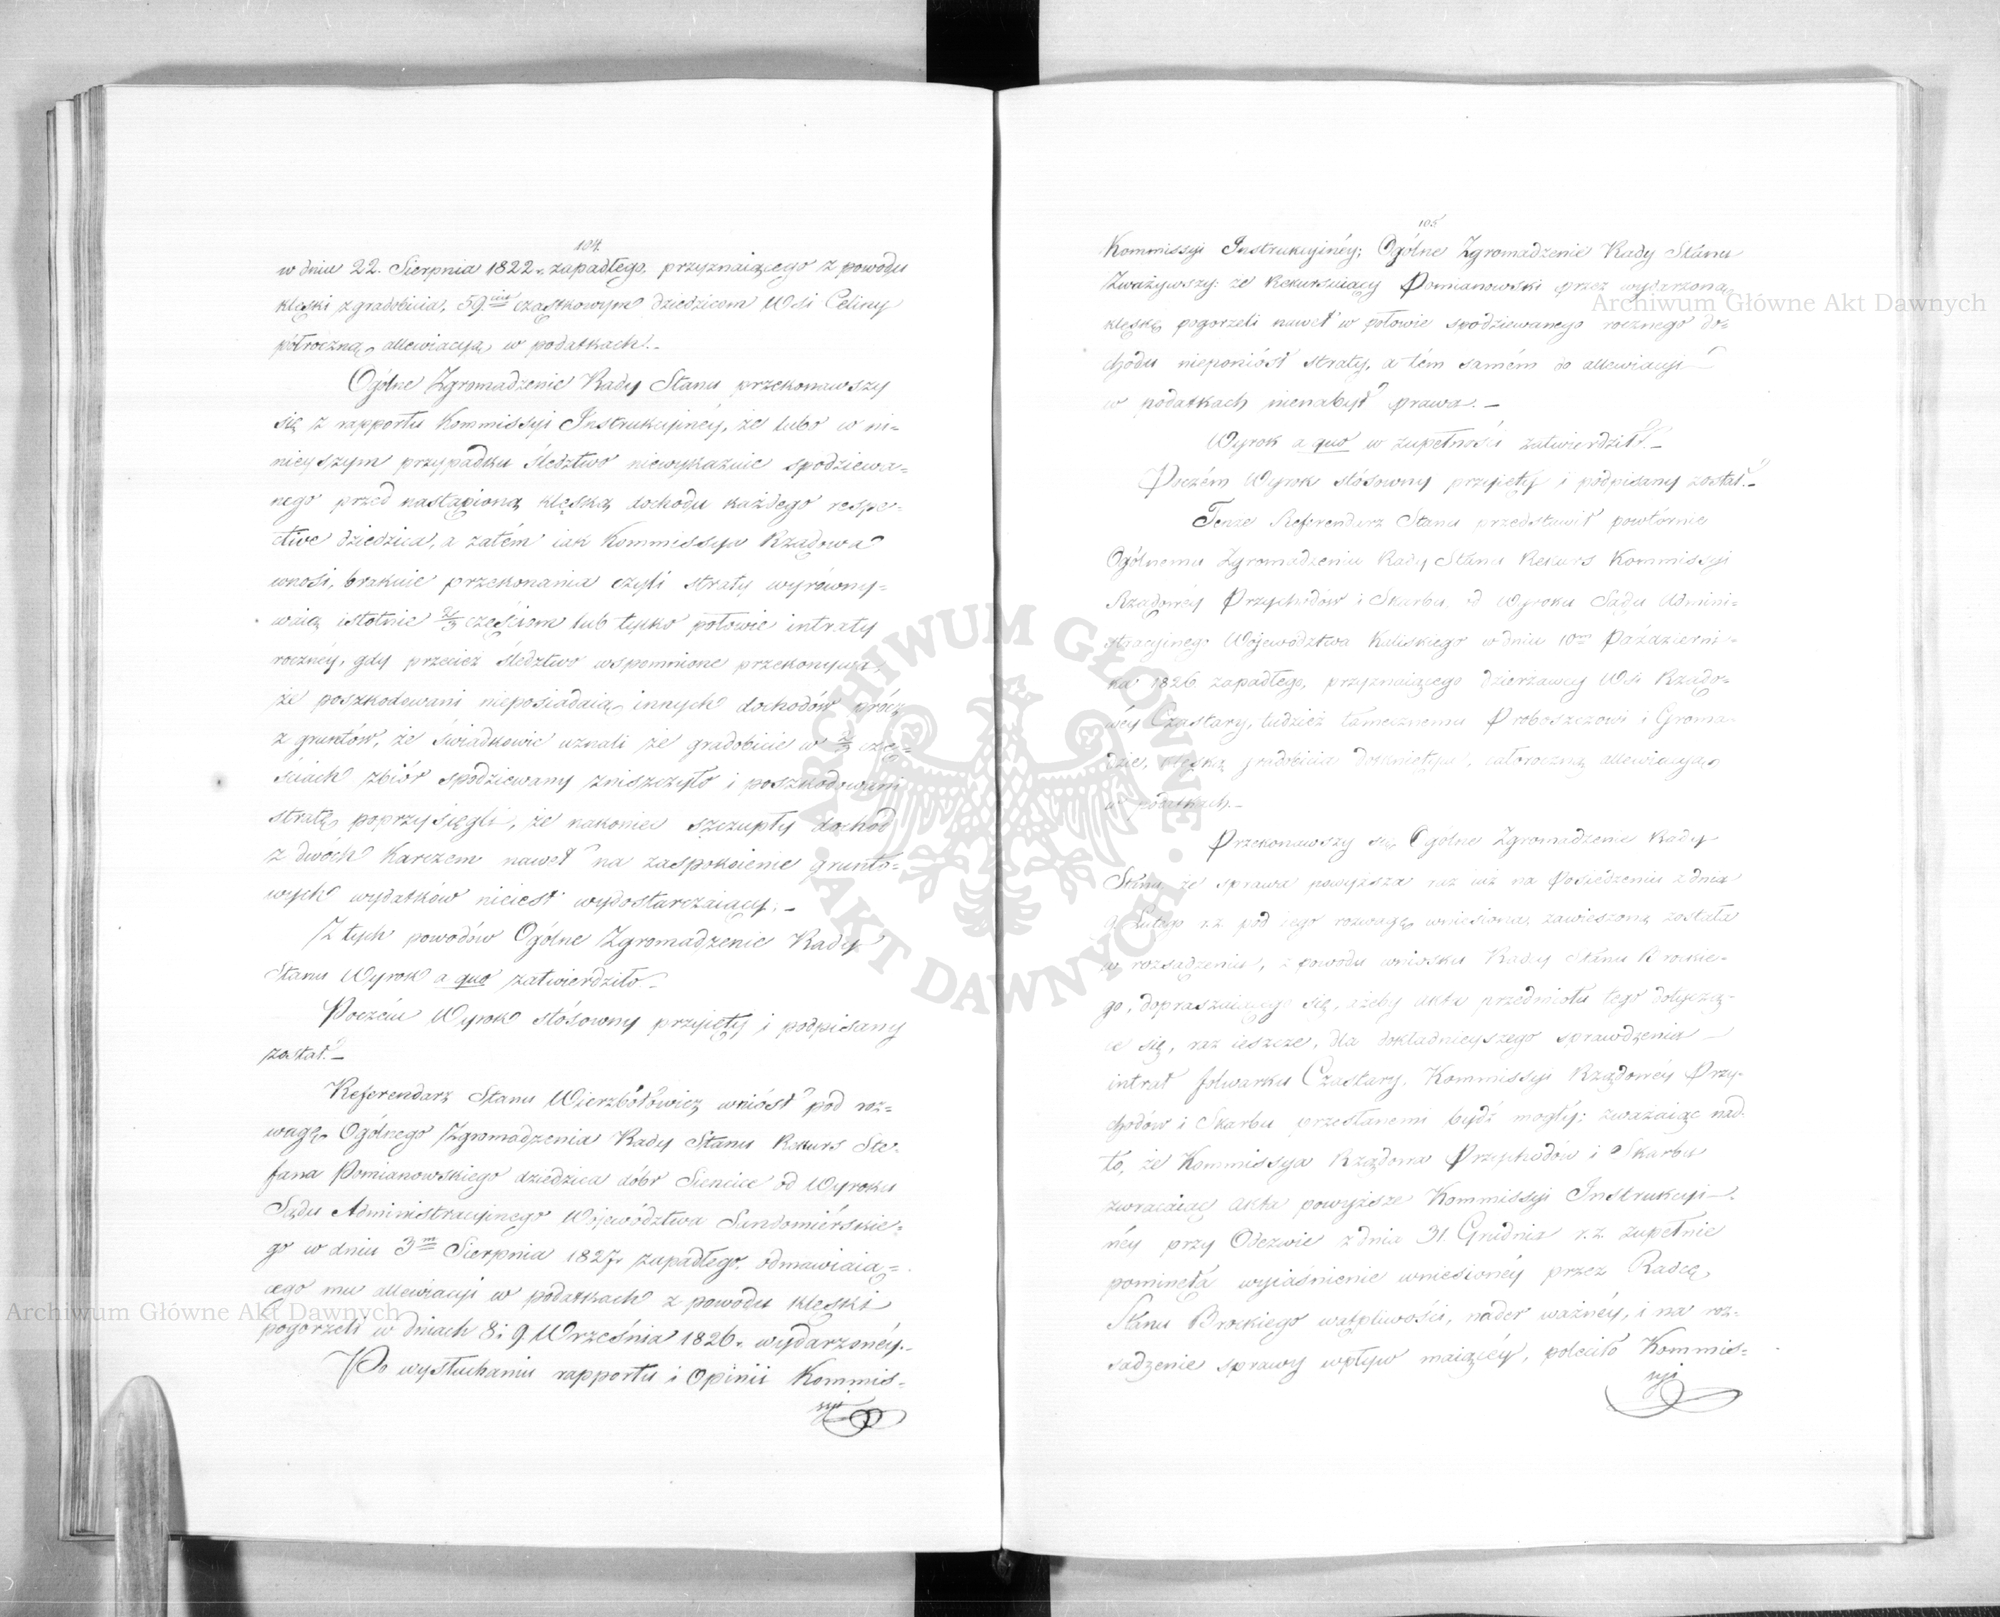 104
w dniu 22. Sierpnia 1822. zapadłego, przyznaiącego z powodu
klęski z gradobicia, 59.ciu cząstkowym dziedzicom Wsi Celiny
półroczną allewiacyą w podatkach.-
Ogólne Zgromadzenie Rady Stanu przekonawszy
się z rapportu Kommissyi Instrukcyinéy, że lubo w ni=
nieyszym przypadku śledztwo niewykazuie spodziewa=
nego przed nastąpioną klęską dochodu każdego respe=
ctive dziedzica, a zatém iak Kommissya Rządowa
wnosi, brakuie przekonania czyli straty wyrówny=
waią istotnie 2/3 częściom lub tylko połowie intraty
rocznéy, gdy przecież śledztwo wspomnione przekonywa,
że poszkodowani nieposiadaią innych dochodów prócz
z gruntów, że świadkowie uznali że gradobicie w 2/3 czę=
ściach zbiór spodziewany zniszczyło i poszkodowani
stratę poprzysięgli, że nakoniec szczupły dochód
z dwóch Karczem nawet na zaspokoienie grunto=
wych wydatków nieiest wydostarczaiący;-
Z tych powodów Ogólne Zgromadzenie Rady
Stanu Wyrok a quo zatwierdziło.-
Poczém Wyrok stósowny przyięty i podpisany
został.-
Referendarz Stanu Wierzbołowicz wniósł pod roz=
wagę Ogólnego Zgromadzenia Rady Stanu Rekurs Ste=
fana Pomianowskiego dziedzica dóbr Siencice od Wyroku
Sądu Administracyinego Województwa Sandomiérskie=
go w dniu 3m Sierpnia 1827. zapadłego, odmawiaią=
cego mu allewiacyi w podatkach z powodu klęski
pogorzeli w dniach 8 i 9. Września 1826. wydarzonéy.-
Po wysłuchaniu rapportu i Opinii Kommis=
syi
105
Kommissyi Instrukcyinéy; Ogólne Zgromadzenie Rady Stanu
Zważywszy: że Rekursuiący Pomianowski przez wydarzoną
klęskę pogorzeli nawet w połowie spodziewanego rocznego do=
chodu nieponiósł straty, a tém samém do allewiacyi
w podatkach nienabył prawa.-
Wyrok a quo w zupełności zatwierdził.-
Poczém Wyrok stósowny przyięty i podpisany został.-
Tenże Referendarz Stanu przedstawił powtórnie
Ogólnemu Zgromadzeniu Rady Stanu Rekurs Kommissyi
Rządowéy Przychodów i Skarbu od Wyroku Sądu Admini=
stracyinego Województwa Kaliskiego w dniu 10m Październi=
ka 1826 zapadłego, przyznaiącego dzierżawcy Wsi Rządo=
wéy Czastary, tudzież tamecznemu Proboszczowi i Groma=
dzie, klęską gradobicia dotkniętym, całoroczną allewiacyą
w podatkach.-
Przekonawszy się Ogólne Zgromadzenie Rady
Stanu, że sprawa powyższa raz iuż na Posiedzeniu z dnia
9. Lutego r.z. pod iego rozwagę wniesiona, zawieszoną została
w rozsądzeniu, z powodu wniosku Radcy Stanu Brockie=
go, dopraszaiącego się, ażeby akta przedmiotu tego dotyczą=
ce się, raz ieszcze, dla dokładnieyszego sprawdzenia
intrat folwarku Czastary, Kommissyi Rządowéy Przy=
chodów i Skarbu przesłanemi bydź mogły; zważaiąc nad=
to, że Kommissya Rządowa Przychodów i Skarbu
zwracaiąc akta powyższe Kommissyi Instrukcyi=
néy przy Odezwie z dnia 31. Grudnia r.z. zupełnie
pominęła wyiaśnienie wniesionéy przez Radcę
Stanu Brockiego wątpliwości, nader ważnéy, i na roz=
sądzenie sprawy wpływ maiącéy, poleciło Kommis=
syi
Archiwum Główne Akt Dawnych
Archiwum Główne Akt Dawnych
ARCHIWUM GŁÓWNE
AKT DAWNYCH